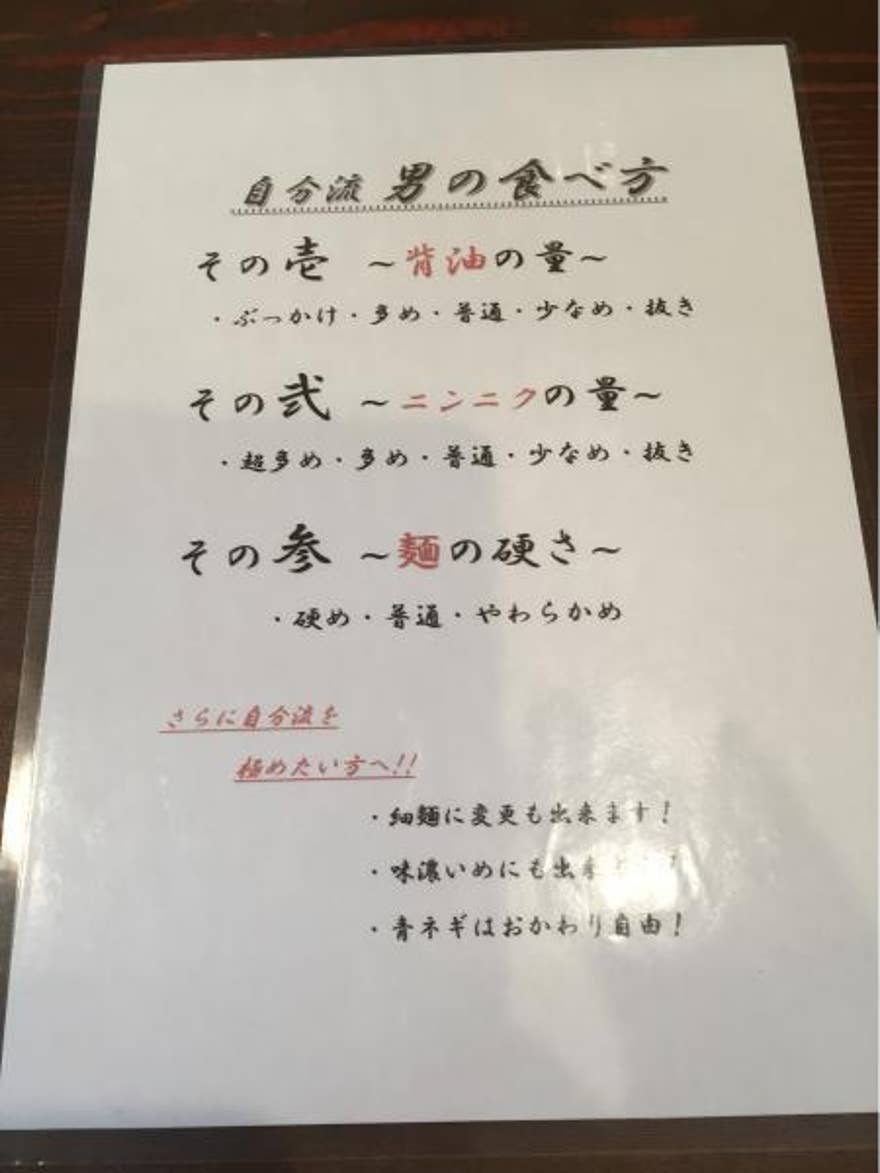 自分流 男の食べ方
その壱 ～背油の量～
・ぶっかけ・多め・普通・少なめ・抜き
その弐 ～ニンニクの量～
・超多め・多め・普通・少なめ・抜き
その参 ～麺の硬さ～
・硬め・普通・やわらかめ
さらに自分流を
極めたい方へ!!
・細麺に変更も出来ます！
・味濃いめにも出来
・青ネギはおかわり自由！